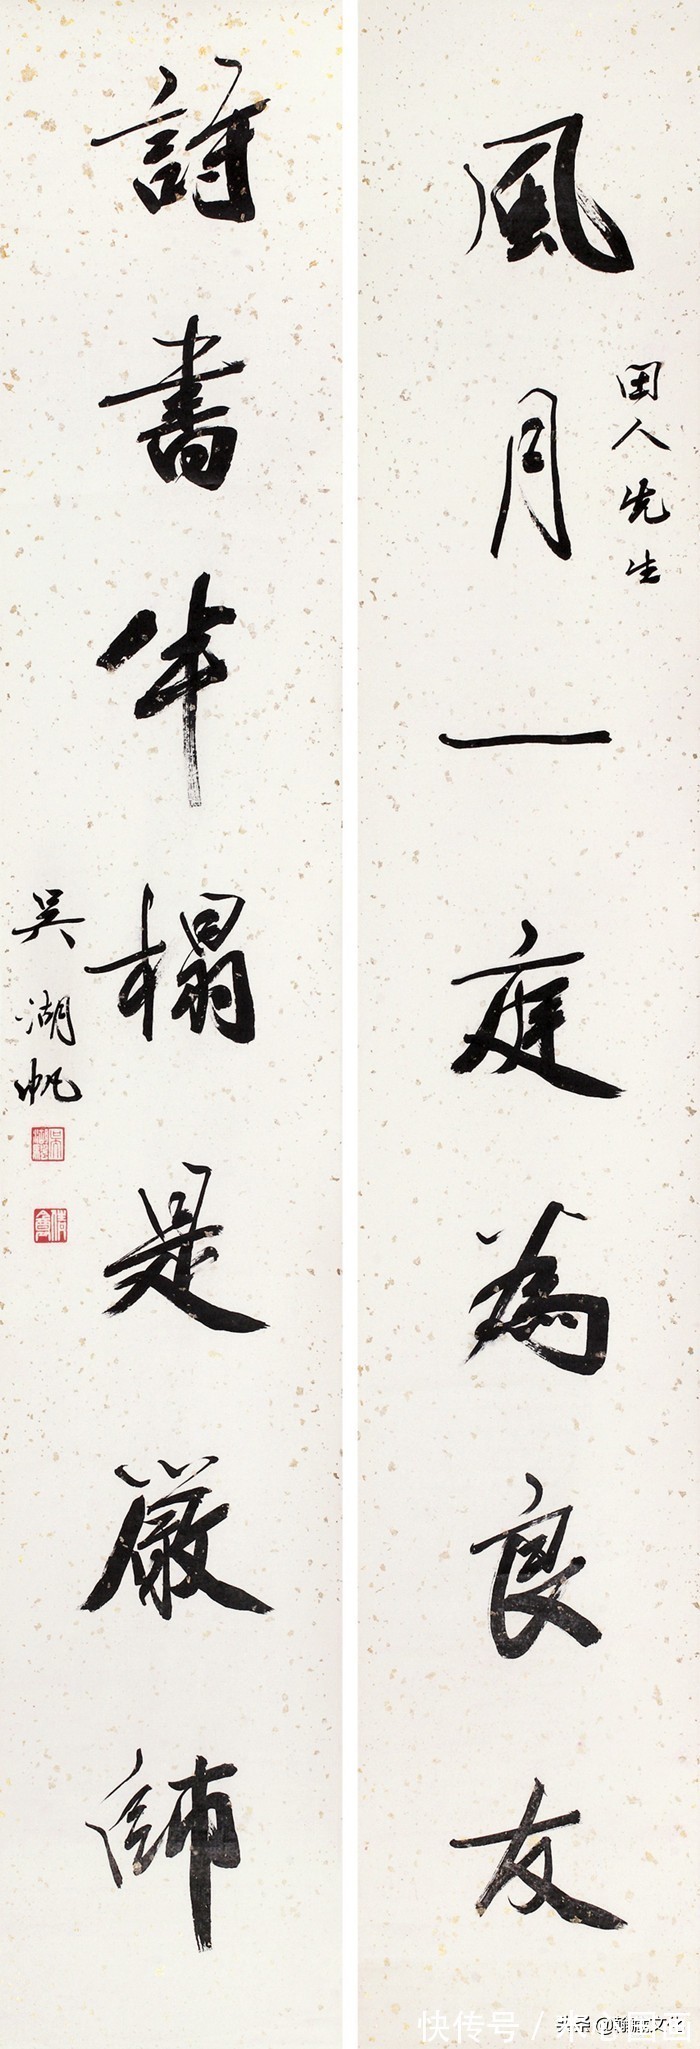 風月一庭為良友
人先生
詩書半榻是嚴師
吳湖帆
快传号 /
头条 @翰墨文化